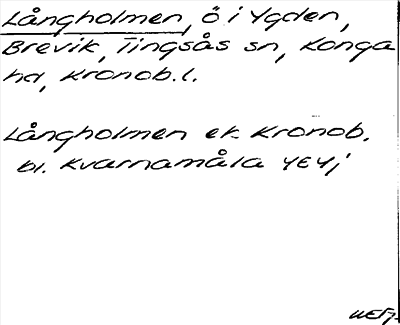 Långholmen, ö i Ygden,
Brevik, Tingsås sn, Konga
hd, Kronob. l.
Långholmen ek Kronob.
bl. Kvarnamåla 4E4j